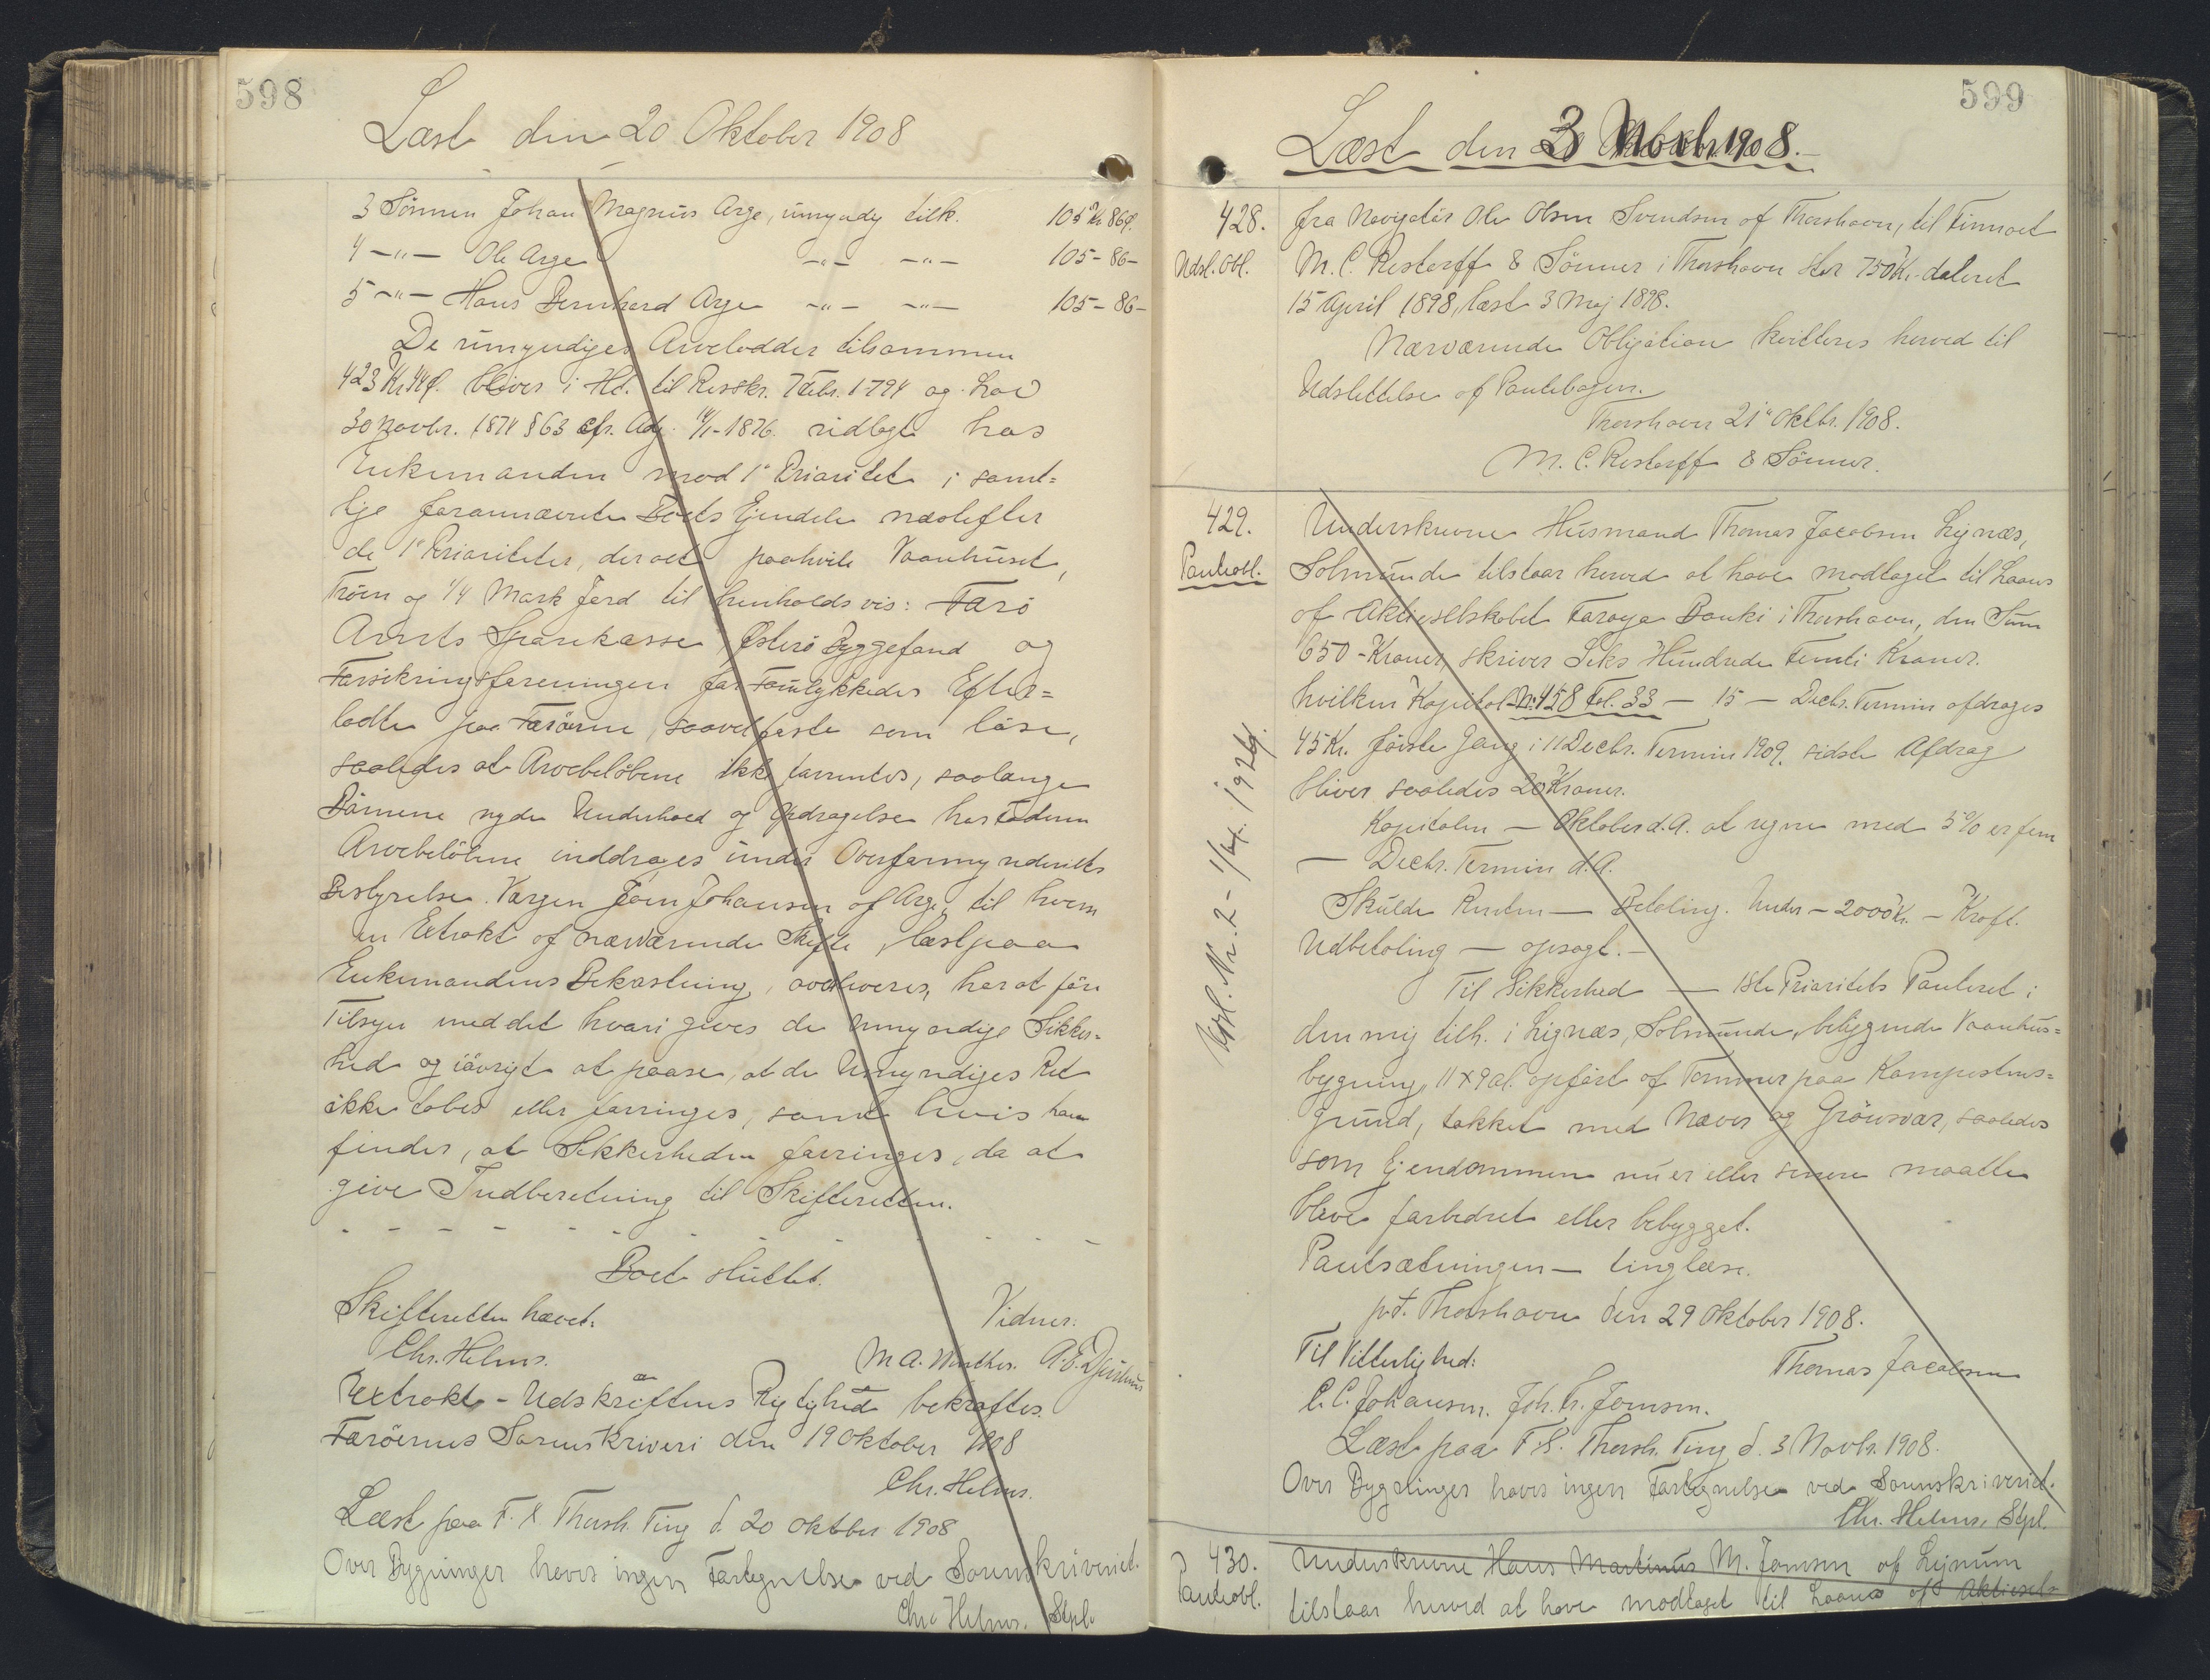 598
Læst den 20 Oktober 1908
3 Sönnen Johan Magnus Arge, umyndig tilk. 105 Kr 86 Ø.
4 -"- Ole Arge -"- -"- 105-86-
5 -"- Hans Bernhard Arge -"- -"- 105-86-
De umyndiges Arvelodder tilsammen
423 Kr. 44 Ø. bliver i Hh. til Resskr. 7 Febr. 1794 og Lov
30 Novbr. 1874 § 63 cfr. Adj. 14/1-1876 udlagt hos
Enkemanden mod 1ste Prioritet i samt=
lige forannævnte Boets Ejendele næstefter
de 1ste Prioriteter, der alt paahvile Vaanhuset,
Tröen og 1/4 Mark Jord til henholdsvis: Færö
Amts Sparekasse, Østerö Byggefond og
Forsikringsforeningen for Forulykkedes Efter=
ladte paa Færöerne, saavel faste som löse,
saaledes at Arvebelöbene ikke forrentes, saalænge
Börnene nyder Underhold og Opdragelse hos Faderen
Arvebelöbene inddrages under Overformynderiets
Bestyrelse. Værgen Joen Johansen af Arge, til hvem
en Extrakt af nærværende Skifte, læst paa
Enkemandens Bekostning, avleveres, har at före
Tilsyn med det hvori gives de Umyndige Sikker=
hed og iövrigt at paase, at de Umyndiges Ret
ikke tabes eller forringes, samt hvis han
finder, at Sikkerheden forringes, da at
give Indberetning til Skifteretten.
- - - - - - - - - - -
Boet sluttet.
Skifteretten hævet. Vidner:
Chr. Helms. M A. Winther. A. E. Djurhuus
Extrakt-Udskriftens Rigtighed bekræftes.
Færöernes Sorenskriveri den 19 Oktober 1908
Chr. Helms.
Læst paa F. S. Thorsh. Ting d. 20 Oktober 1908
Over Bygninger haves ingen Fortegnelse ved Sorenskriveriet.
Chr. Helms. Stpl.
599
Læst den 3 Novbr. 1908.
428. fra Navigatör Ole Olsen Svendsen af Thorshavn, til Firmaet
Udsl. Obl. M. C. Restorff & Sönner i Thorshavn stor 750 Kr. dateret
15 April 1898, læst 3 Maj 1898.
Nærværende Obligation kvitteres herved til
Udslettelse af Pantebogen.
Thorshavn 21de Oktbr. 1908.
M. C. Restorff & Sönner.
429. Underskrevne Husmand Thomas Jacobsen Lignæs,
Panteobl. Solmunde tilstaar herved at have modtaget til Laans
af Aktieselskabet Føroya Banki i Thorshavn, den Sum
650-Kroner, skriver Seks Hundrede Femti Kroner.
hvilken Kapital Nr. 458 Fol. 33 - 15 - Decbr. Termin afdrages
45 Kr. förste Gang i 11 Decbr. Termin 1909, sidste Afdrag
bliver saaledes 20 Kroner.
Kapitalen - Oktober d. A. at regne med 5 % er fem
- Decbr. Termin d. A.
Skulde Renten - Betaling. Under - 2000 Kr. - Kraft.
Udbetaling - opsagt. -
Til Sikkerhed - 1ste Prioritets Panteret i
den mig tilh. i Lignæs, Solmunde, beliggende Vaanhus=
bygning, 11 x 9 al. opfört af Tömmer paa Kampestens=
grund, takket med Næver og Grönsvær, saaledes
som Ejendommen nu er eller senere maatte
blive forbedret eller bebygget.
Pantsætningen - tinglæse.
p.t. Thorshavn den 29 Oktober 1908.
Til Vitterlighed: Thomas Jacobsen
C. C. Johansen. Joh. H. Joensen.
Læst paa F. S. Thorsh. Ting d. 3 Novbr. 1908.
Over Bygninger haves ingen Fortegnelse ved Sorenskriveriet.
Chr. Helms. Stpl.
Udsl. Nr. 2 - 1/4. 1924.
430. Underskrevne Hans Martinus M. Joensen af Lejnum
Panteobl. tilstaar herved at have modtaget til Laans af Aktiesel=